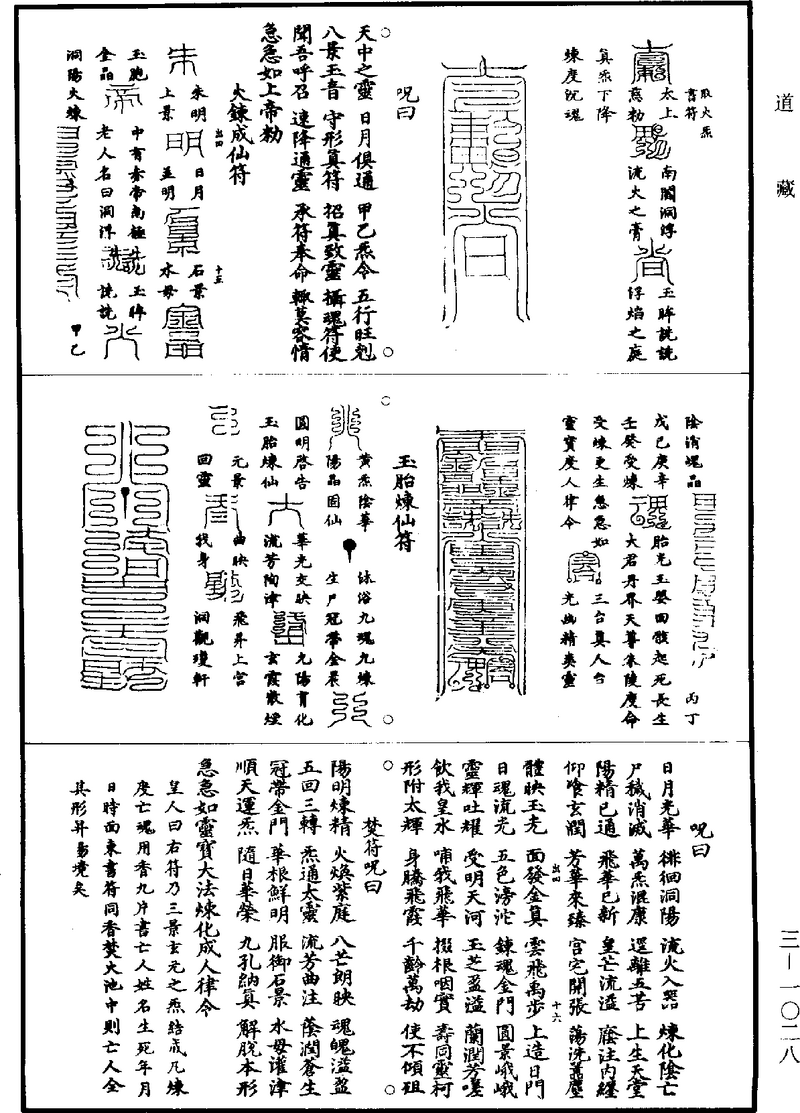 道藏
取火炁
書符
太上 南閽洞浮 玉眸詵詵
慈勑 流火之膏 浮焰之庭
真炁下降
煉度沉魂
呪曰
天中之靈 日月俱通 甲乙炁令 五行旺尅
八景玉音 守形真符 招真致靈 攝魂符使
聞吾呼召 速降通靈 承符奉命 輒莫容情
急急如上帝勑
火鍊成仙符
朱明 日月 石景
上景 並明 水母
出四 十五
玉胞 中有赤帝南極 玉眸
金晶 老人名曰洞浮 詵詵
洞陽火煉 甲乙
陰消魂晶 丙丁
戊己庚辛 胎光玉嬰面骸起死長生
壬癸受煉 大君丹界天尊朱陵度命
受煉更生急急如 三台真人台
靈寶度人律令 光幽精爽靈
玉胎煉仙符
黃炁陰華 沐浴九魂九煉
陽晶固仙 生尸冠帶金晨
圓明啓告 華光交映 九陽育化
玉胎煉仙 流芳陶津 玄霞散煙
元景 曲映 飛昇上宮
回靈 我身 洞觀瓊軒
呪曰
日月光華 徘徊洞陽 流火入器 煉化陰亡
尸穢消滅 萬炁混康 逕離五苦 上生天堂
陽精已通 飛華已新 皇芒流溢 灌注內纏
仰飡玄潤 芳華來臻 宮宅開張 蕩洗舊塵
體映玉光 面發金真 雲飛禹步 上造日門
出四 十六
日魂流光 五色滂沱 鍊魂金門 圓景峨峨
靈輝吐耀 受明天河 玉芝盈溢 蘭潤芳嗟
飲我皇水 哺我飛華 掇根咽實 壽同靈柯
形附太輝 身騰飛霞 千齡萬劫 使不傾頹
焚符呪曰
陽明煉精 火煥紫庭 八芒朗映 魂魄溢盈
五回三轉 炁通太靈 流芳曲注 蔭潤蒼生
冠帶金門 華根鮮明 服御石景 水母灌津
順天運炁 隨日華榮 九孔納真 解脫本形
急急如靈寶大法煉化成人律令
呈人曰右符乃三景玄元之炁結成凡煉
度亡魂用香九片書亡人姓名生死年月
日時面東書符同香焚火池中則亡人全
其形昇易境矣
三—一〇二八